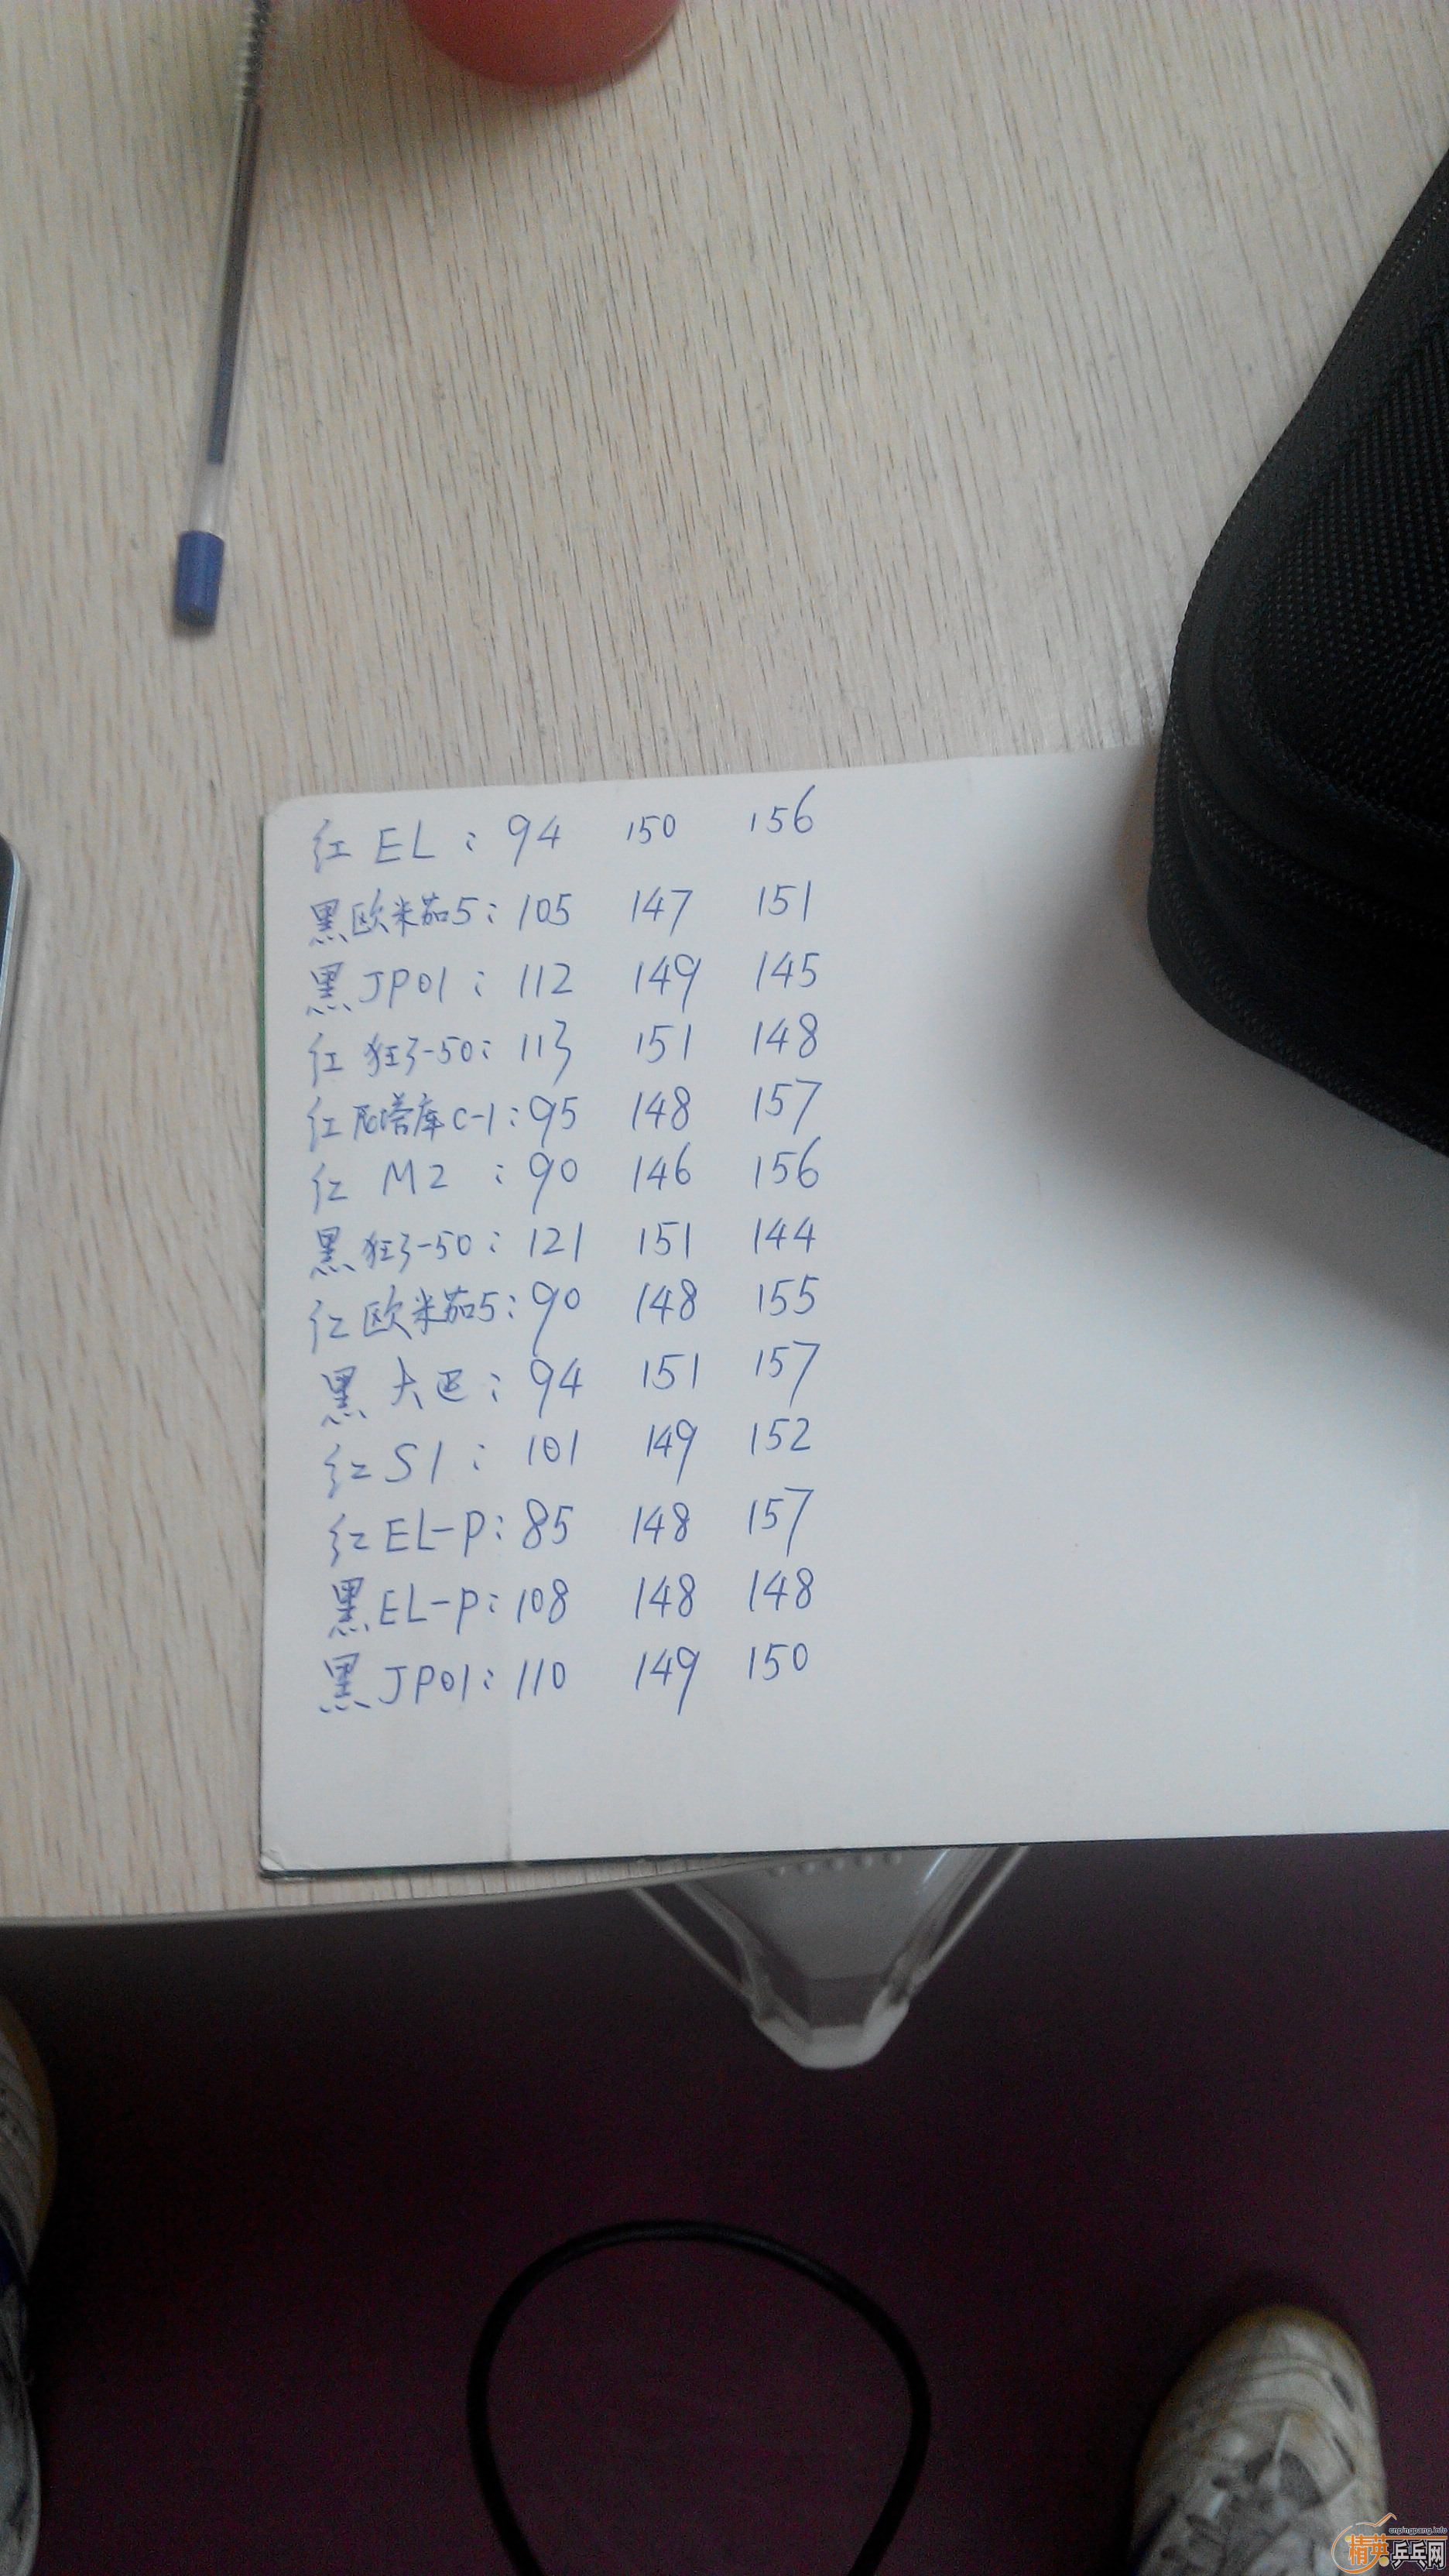 红 EL : 94 150 156
黑欧米茄5: 105 147 151
黑JP01 : 112 149 145
红 狂3-50: 113 151 148
红 尼塔库 C-1: 95 148 157
红 M2 : 90 146 156
黑 狂3-50: 121 151 144
红 欧米茄5: 90 148 155
黑 大巴: 94 151 157
红 S1 : 101 149 152
红 EL-P: 85 148 157
黑EL-P: 108 148 148
黑JP01: 110 149 150
cnpingpang.info
精英乒乓网